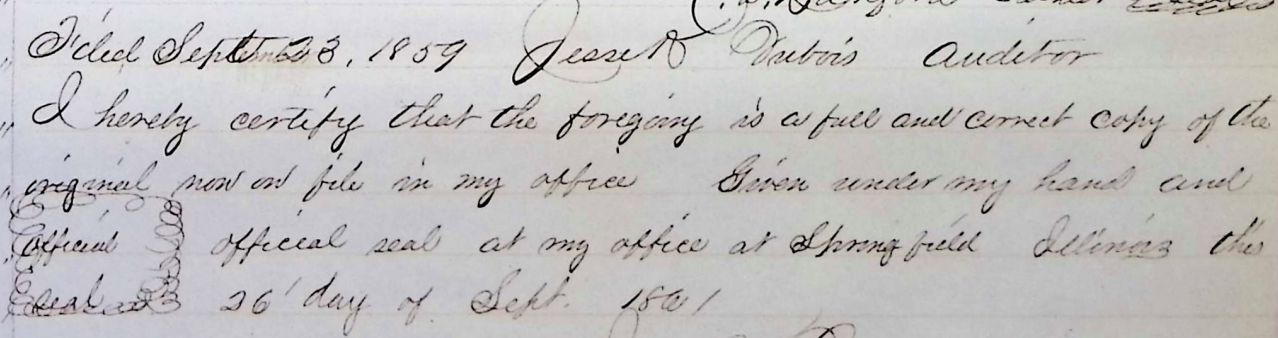 Filed Sept 23, 1859 Jesse K Dubois Auditor
I hereby certify that the foregoing is a full and correct copy of the
original now on file in my office Given under my hand and
Official official seal at my office at Springfield Illinois the
Seal 26 day of Sept. 1861